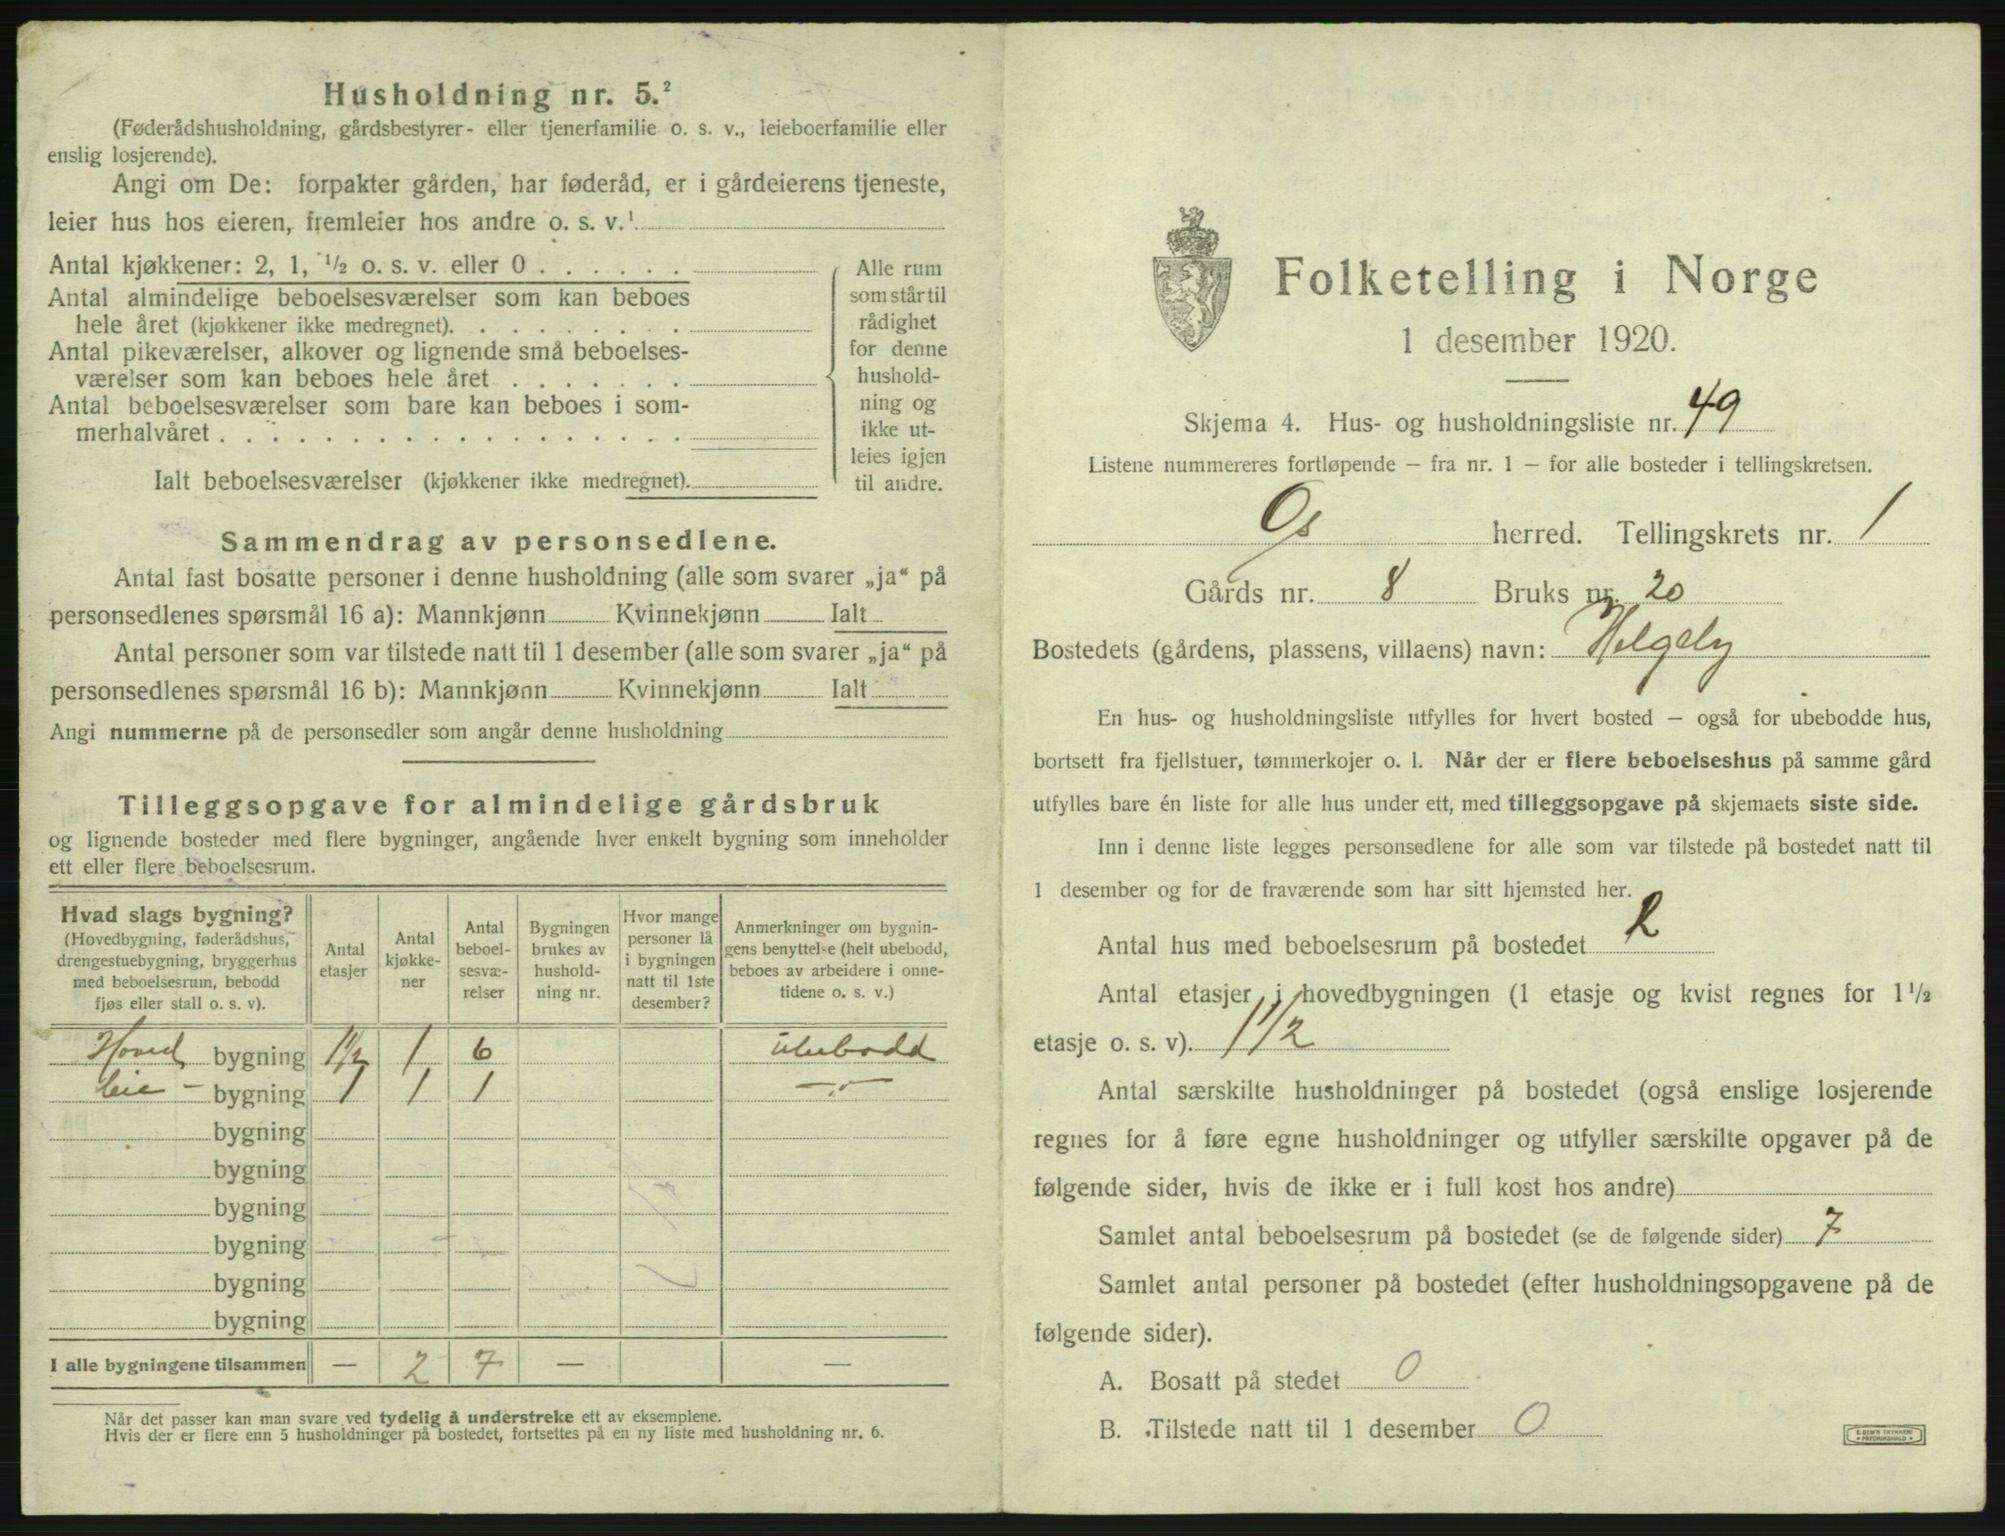 Husholdning nr. 5.²
(Føderådshusholdning, gårdsbestyrer- eller tjenerfamilie o. s. v., leieboerfamilie eller
enslig losjerende).
Angi om De: forpakter gården, har føderåd, er i gårdeierens tjeneste,
leier hus hos eieren, fremleier hos andre o. s. v.¹
Antal kjøkkener: 2, 1, ½ o. s. v. eller 0 . . . . . .
Antal almindelige beboelsesværelser som kan beboes
hele året (kjøkkener ikke medregnet). . . . . . . . .
Antal pikeværelser, alkover og lignende små beboelses-
værelser som kan beboes hele året . . . . . . .
Antal beboelsesværelser som bare kan beboes i som-
merhalvåret . . . . . . . . . . . . . . . . . .
Ialt beboelsesværelser (kjøkkener ikke medregnet).
Alle rum
som står til
rådighet
for denne
hushold-
ning og
ikke ut-
leies igjen
til andre.
Sammendrag av personsedlene.
Antal fast bosatte personer i denne husholdning (alle som svarer „ja“ på
personsedlenes spørsmål 16 a): Mannkjønn Kvinnekjønn Ialt
Antal personer som var tilstede natt til 1 desember (alle som svarer „ja“ på
personsedlenes spørsmål 16 b): Mannkjønn Kvinnekjønn Ialt
Angi nummerne på de personsedler som angår denne husholdning
Tilleggsopgave for almindelige gårdsbruk
og lignende bosteder med flere bygninger, angående hver enkelt bygning som inneholder
ett eller flere beboelsesrum.
Hvad slags bygning?
(Hovedbygning, føderådshus,
drengestuebygning, bryggerhus
med beboelsesrum, bebodd
fjøs eller stall o. s. v).
Antal
etasjer
Antal
kjøkke-
ner
Antal
beboel-
sesvæ-
relser
Bygningen
brukes av
hushold-
ning nr.
Hvor mange
personer lå
i bygningen
natt til 1ste
desember?
Anmerkninger om bygnin-
gens benyttelse (helt ubebodd,
beboes av arbeidere i onne-
tidene o. s. v.)
Hoved bygning 1½ 1 6 ubebodd
leie - bygning 1 1 1 -„-
bygning
bygning
bygning
bygning
bygning
bygning
I alle bygningene tilsammen — 2 7 — —
Når det passer kan man svare ved tydelig å understreke ett av eksemplene.
Hvis der er flere enn 5 husholdninger på bostedet, fortsettes på en ny liste med husholdning nr. 6.
Folketelling i Norge
1 desember 1920.
Skjema 4. Hus- og husholdningsliste nr. 49
Listene nummereres fortløpende – fra nr. 1 – for alle bosteder i tellingskretsen.
Os herred. Tellingskrets nr. 1
Gårds nr. 8 Bruks nr. 20
Bostedets (gårdens, plassens, villaens) navn: Helgeby
En hus- og husholdningsliste utfylles for hvert bosted – også for ubebodde hus,
bortsett fra fjellstuer, tømmerkojer o. l. Når der er flere beboelseshus på samme gård
utfylles bare én liste for alle hus under ett, med tilleggsopgave på skjemaets siste side.
Inn i denne liste legges personsedlene for alle som var tilstede på bostedet natt til
1 desember og for de fraværende som har sitt hjemsted her.
Antal hus med beboelsesrum på bostedet 2
Antal etasjer i hovedbygningen (1 etasje og kvist regnes for 1½
etasje o. s. v). 1½
Antal særskilte husholdninger på bostedet (også enslige losjerende
regnes for å føre egne husholdninger og utfyller særskilte opgaver på de
følgende sider, hvis de ikke er i full kost hos andre)
Samlet antal beboelsesrum på bostedet (se de følgende sider) 7
Samlet antal personer på bostedet (efter husholdningsopgavene på de
følgende sider).
A. Bosatt på stedet 0
B. Tilstede natt til 1 desember 0